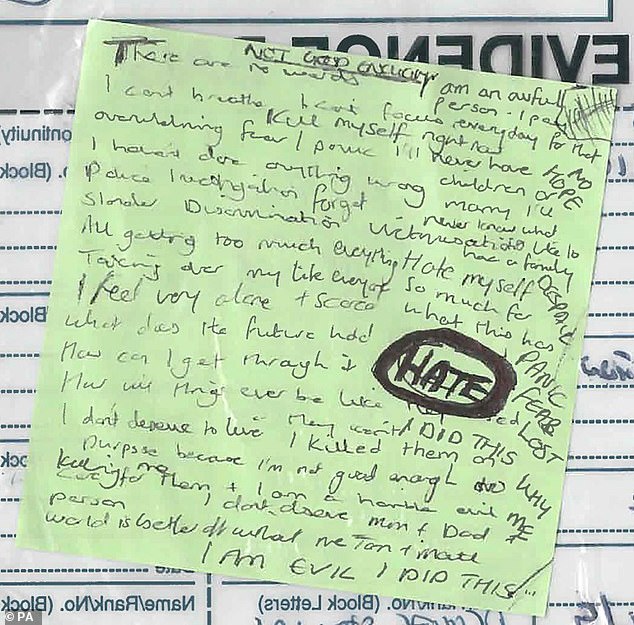 EVIDENCE
NOT GOOD ENOUGH
There are no words I am an awful person I pay
I can't breathe I can't focus everyday for that
Kill myself right now
overwhelming fear / panic I'll never have NO HOPE
children or marry I'll
I haven't done anything wrong never know what
Police investigation forget like to
Slander Discrimination Victimisation had a family
All getting too much everything Hate myself DESPAIR
Taking over my life everyday so much for
I feel very alone + scared what this has PANIC
What does the future hold FEAR
How can I get through it HATE LOST
How will things ever be like they
I DID THIS
I don't deserve to live I killed them on WHY ME
purpose because I'm not good enough
to care for them + I am a horrible evil
person I don't deserve mom + Dad
world is better off without me
I AM EVIL I DID THIS
Continuity)
No. (Block
(Block
ck
Name/Rank/No. (Block Letters)
Name/Rank/No. (Block
© PA